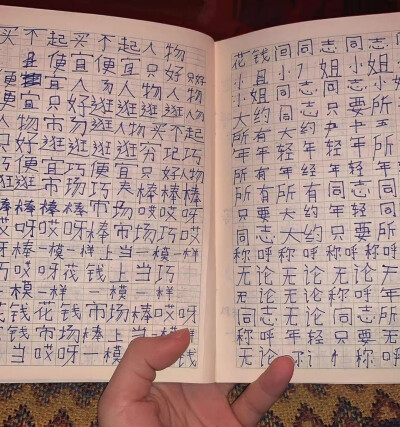 买不起买不起人物
且便宜便宜只好只好
便宜宜人物人物人物
只好只好逛逛逛逛人物
人物市场逛人物买不起
只好逛逛逛逛穷巧巧
便宜巧巧便宜只好
逛逛市场巧棒棒棒
棒棒棒棒市场哎哎呀
哎呀哎呀棒市场巧哎
呀棒一模一样上当一模一样
巧哎呀花钱上当巧
一模一样一模一样
花钱花钱市场棒哎呀
哎呀市场棒上当哎呀
当哎呀一模一样 钱
花钱同同志同志同
小姐小姐小姐小
小姐同志同志只要所
大约大约
所有大约年轻所
年年轻年轻年轻
所有所有同志同
只要大约年轻同
同志大约只要所
称呼称呼称呼称呼
无论无论无论无
无论无论称呼年
同志无论无论称
称呼年轻只要无
无论称 称呼